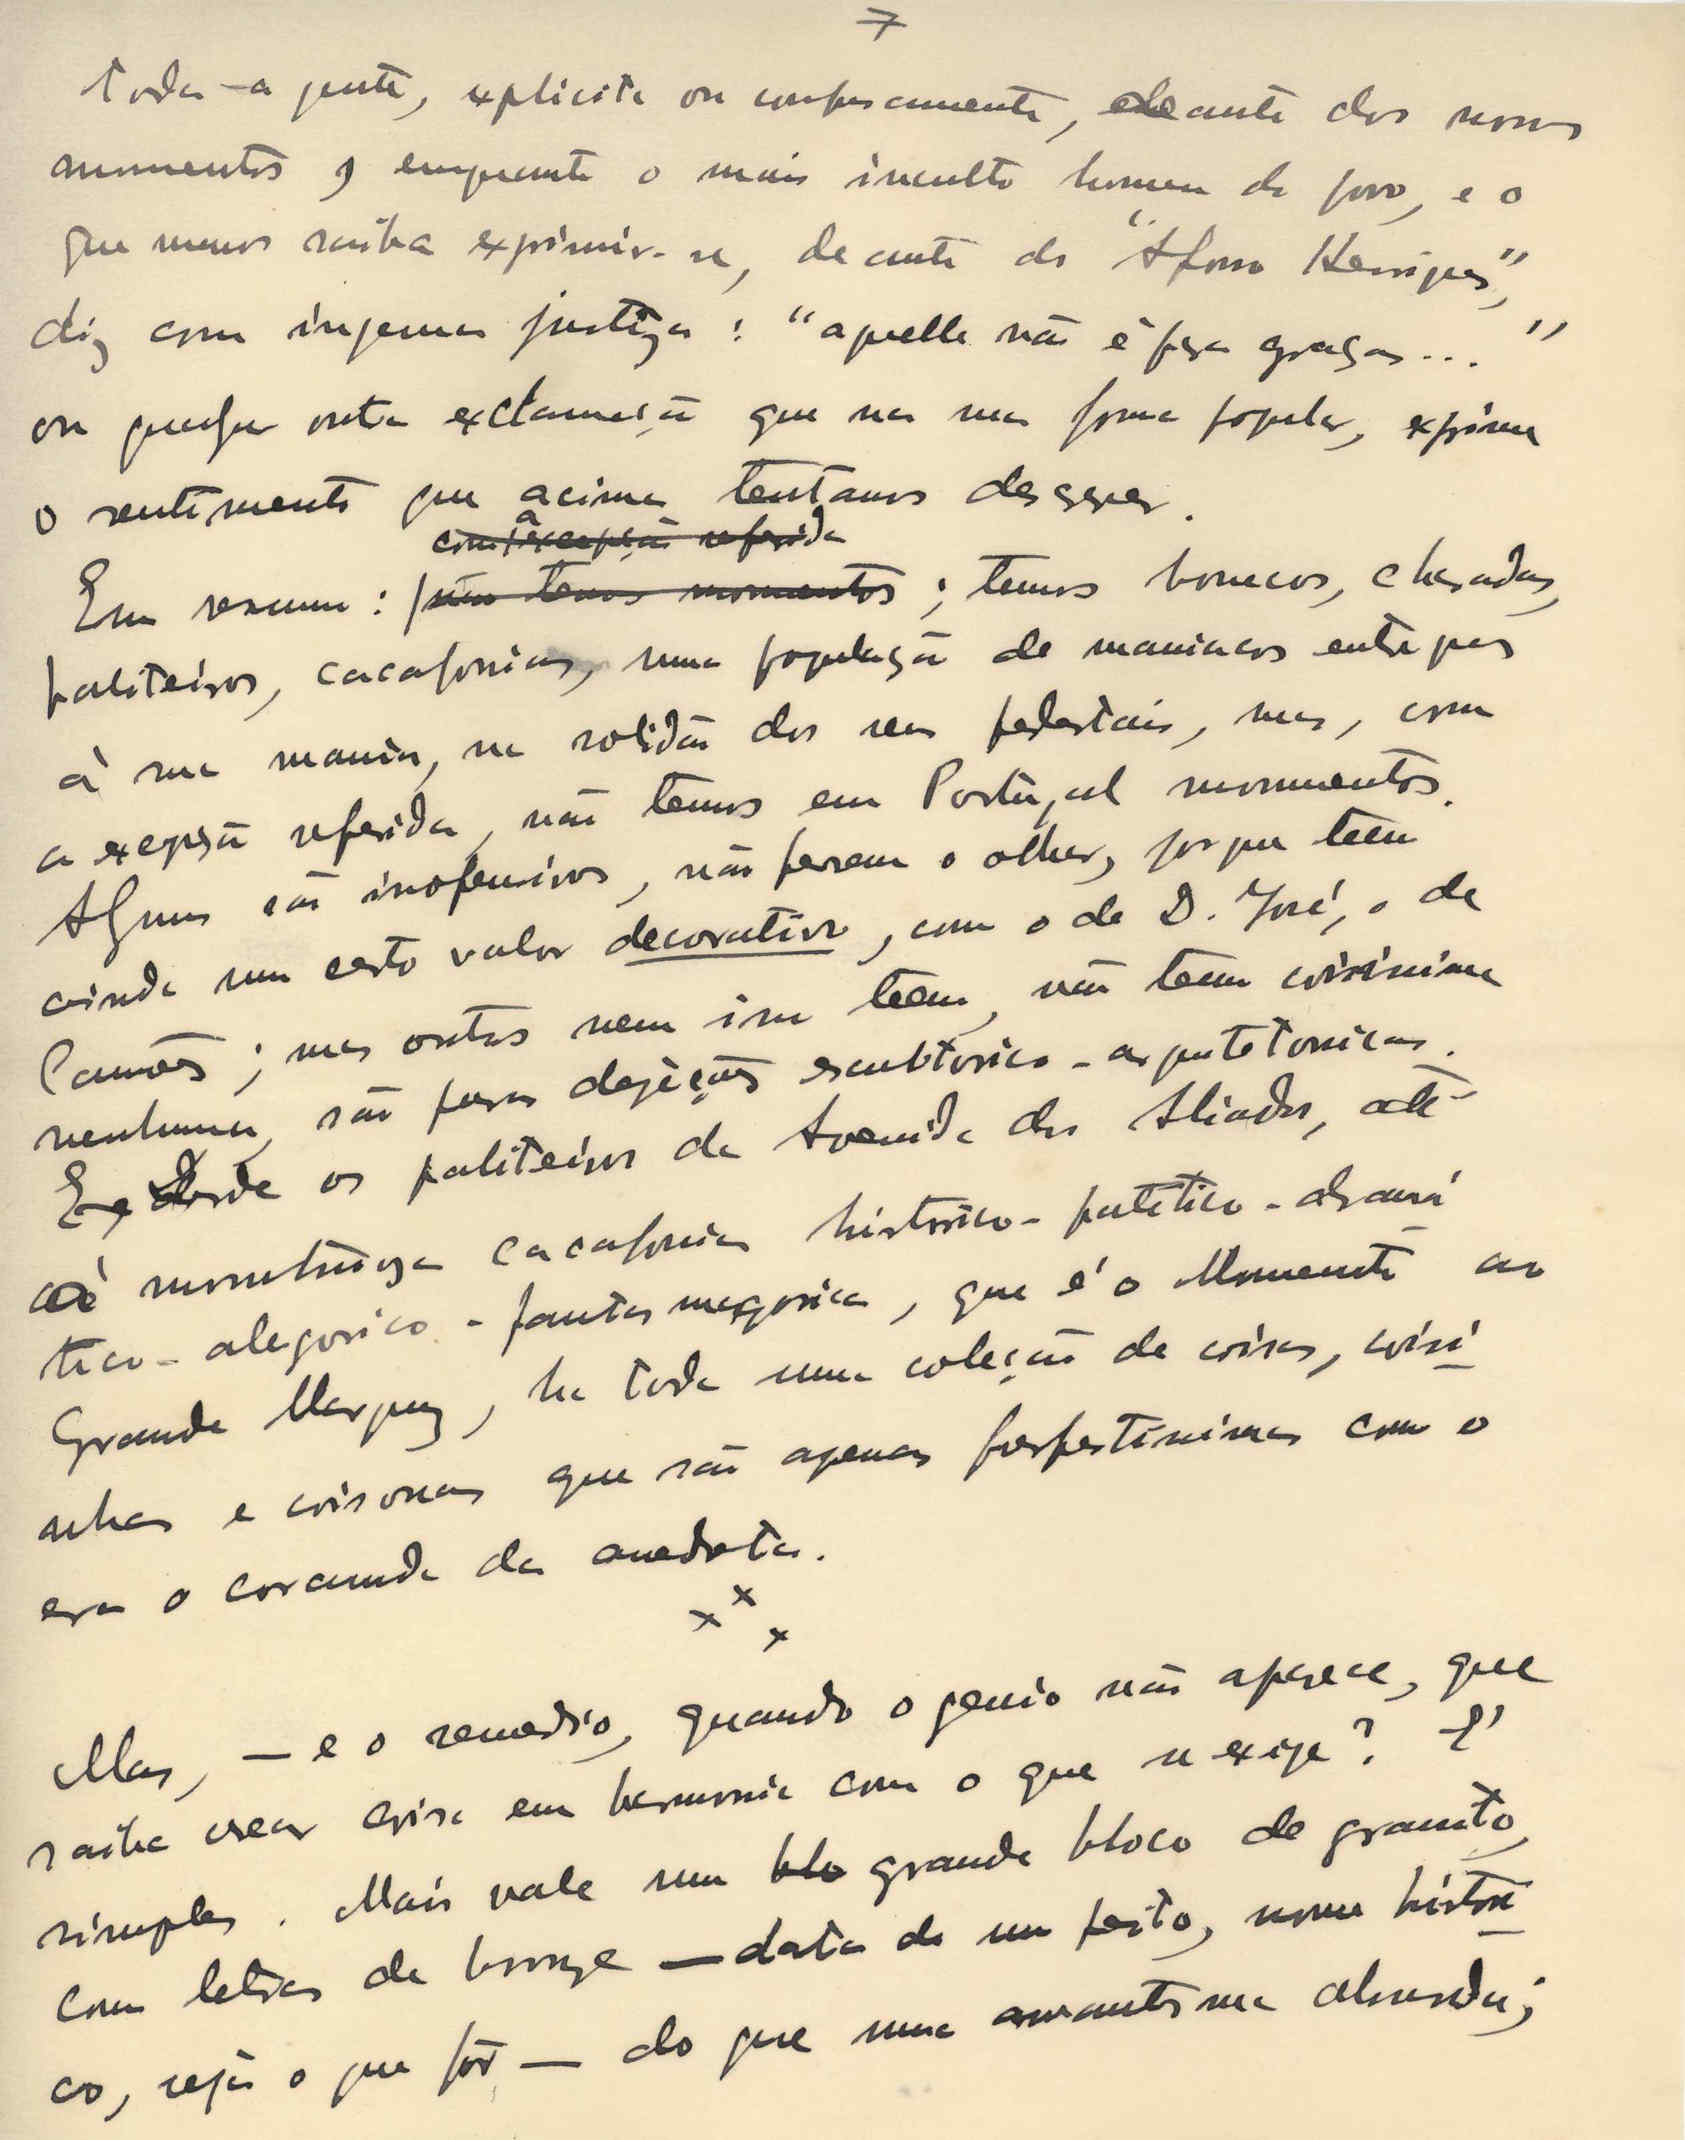 7
toda-a gente, explicita ou confusamente, deante dos nossos
monumentos, emquanto o mais inculto homem do povo, e o
que menos saiba exprimir-se, deante do "Afonso Henriques",
diz com ingenua justiça: "aquelle não é para graças..."
ou qualquer outra exclamação que na sua forma popular, exprime
o sentimento que acima tentamos descrever.
com a excepção referida
Em resumo: não temos monumentos; temos bonecos, charadas,
paliteiros, cacafonias, uma população de maniacos entregues
à sua mania, na solidão dos seus pedestais, mas, com
a exepção referida, não temos em Portugal monumentos.
Alguns são inofensivos, não ferem o olhar, porque teem
ainda um certo valor decorativo, com o de D. José, o de
Camões; mas outros nem isso teem, não teem coisissima
nenhuma, são puras dejèções escultorico-arquitetonicas.
E, desde os paliteiros da Avenida dos Aliados, até
à monstruosa cacafonia historico-patetico-dramá
tico-alegorico-fantasmagorica, que é o Monumento ao
Grande Marquez, ha toda uma coleção de coisas, coisi
nhas e coisonas que são apenas perfeitissimas com o
era o corcunda da anedota.
x x x
Mas, — e o remedio, quando o genio não aparece, que
saiba crear coisa em harmonia com o que se exige? É
simples. Mais vale um blo grande bloco de granito,
com letras de bronze — data de um feito, nome histori
co, seja o que fôr — do que uma absurda;